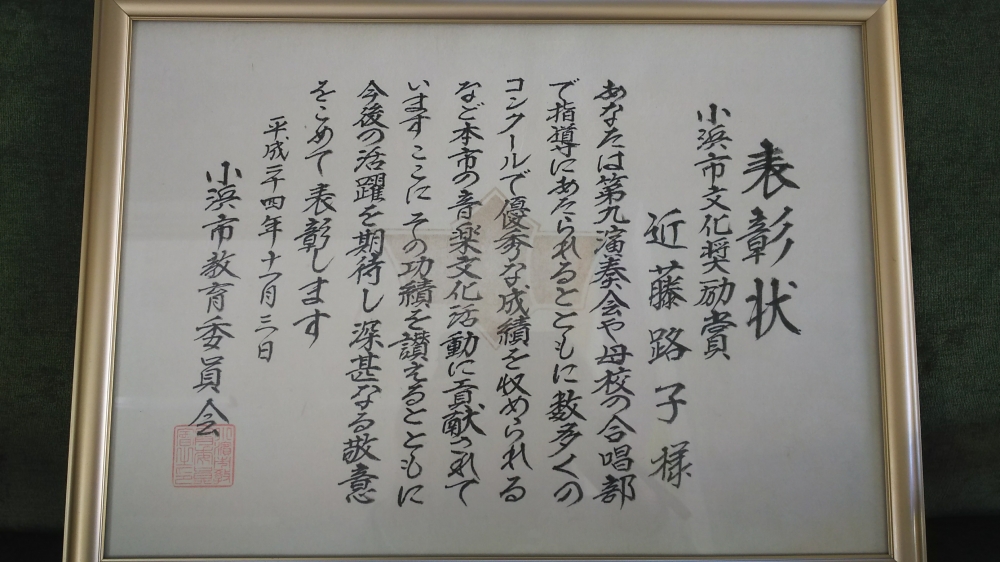 表彰状
小浜市文化奨励賞
近藤路子様
あなたは第九演奏会や母校の合唱部
で指導にあたられるとともに数多くの
コンクールで優秀な成績を収められる
など本市の音楽文化活動に貢献されて
います ここに その功績を讃えるとともに
今後の活躍を期待し 深甚なる敬意
をこめて表彰します
平成二十四年十一月三日
小浜市教育委員会